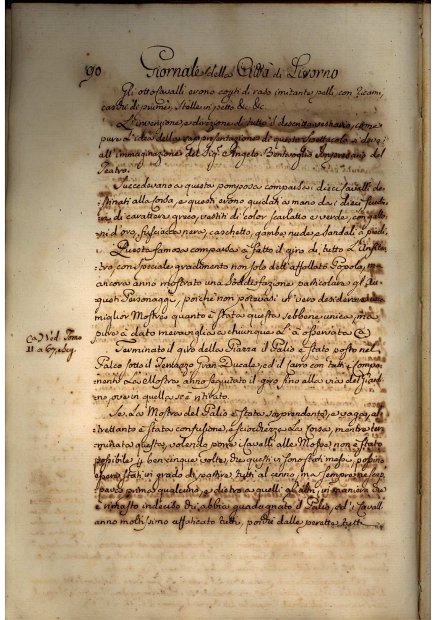 90 Giornale della Città di Livorno
Gli otto Cavalli erono cop.ti di raso imitante, pelli, con ricami,
carichi di piume, stelle in petto &c. &c.
L'invenzione, e direzione di tutto il descritto vestiario, come
pure l'idea della rappresentazione di questo Spettacolo si deve
all'immaginazione del Sig.r Angelo Bentivoglio Impresario del
Teatro.
Succedevano a questa pomposa comparsa i dieci Cavalli de-
stinati alla Corsa, e questi erono guidati a mano da i dieci
di carattere greco, vestiti di color scarlatto e verde, con gallo-
ni d'oro, fusciacca nera, caschetto, gambe nude e sandali a piedi.
Questa famosa comparsa à fatto il giro di tutto l'Anfitea-
tro con speciale gradimento non solo dell'affollato Popolo, ma
ancora anno mostrato una soddisfazione particolare gl'Au-
gusti Personaggi, poichè non potevasi in vero desiderare
miglior Mostra quanto è stata questa sebbene unica, ma
pure à dato meraviglia a chiunque l'à osservata (a)
(a) Ved. Tomo
11 a 67, e seg.
Terminato il giro della Piazza il Palio è stato posto nel
Palco sotto il Terrazzo Gran Ducale, ed il carro con tutti i compo-
nenti la Mostra anno seguitato il giro fino alla via del Giar-
dino, ove in quella si è ritirato.
Se, la Mostra del Palio è stata sorprendente, e vaga, al-
trettanto è stata confusione, e sciocchezza la Corsa, mentre ter-
minata questa, volendo porre i Cavalli alle Mosse, non è stato
possibile, e ben cinque volte, che questi si sono
stati in grado di partire tutti al cenno, ma sempre
prima qualcuno, e dietro a quelli gl'altri, in maniera che
è rimasto indeciso chi abbia guadagnato il Palio, ed i Cavalli
anno moltissimo affaticato tutti, poichè dalle perette tutti